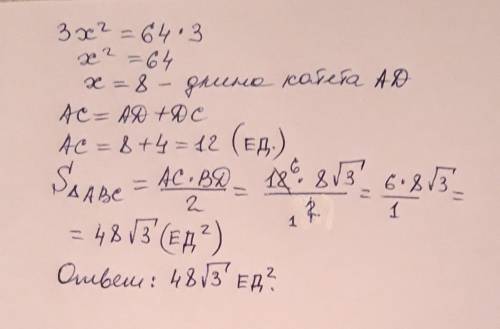 3x² = 64·3
x² = 64
x = 8 – длина катета AD
AC = AD + DC
AC = 8 + 4 = 12 (ЕД.)
S△ABC = AC·BD/2 = 12⁶·8√3/2 1 = 6·8√3/1 =
= 48√3 (ЕД²)
Ответ: 48√3 ЕД².